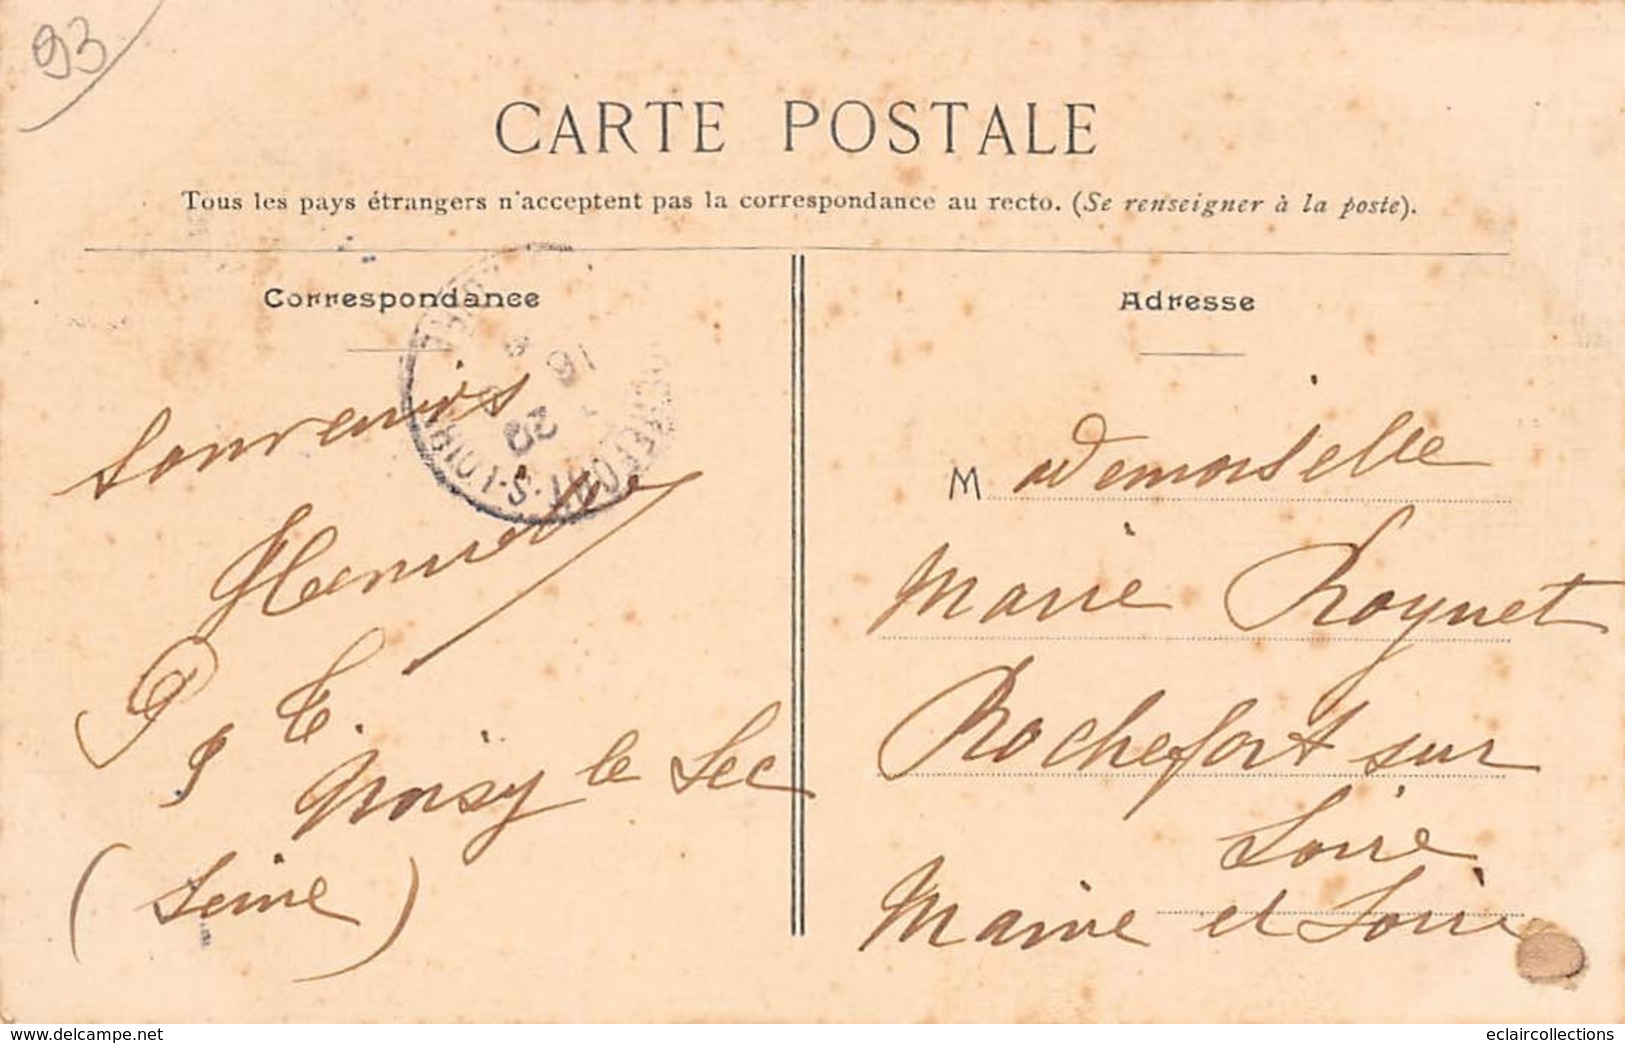 93
CARTE POSTALE
Tous les pays étrangers n'acceptent pas la correspondance au recto. (Se renseigner à la poste).
Correspondance
souvenirs
Noisy le Sec
(Seine)
Adresse
Mademoiselle
Marie Roynet
Rochefort sur
Loire
Maine et Loire
delcampe.net
eclaircollections